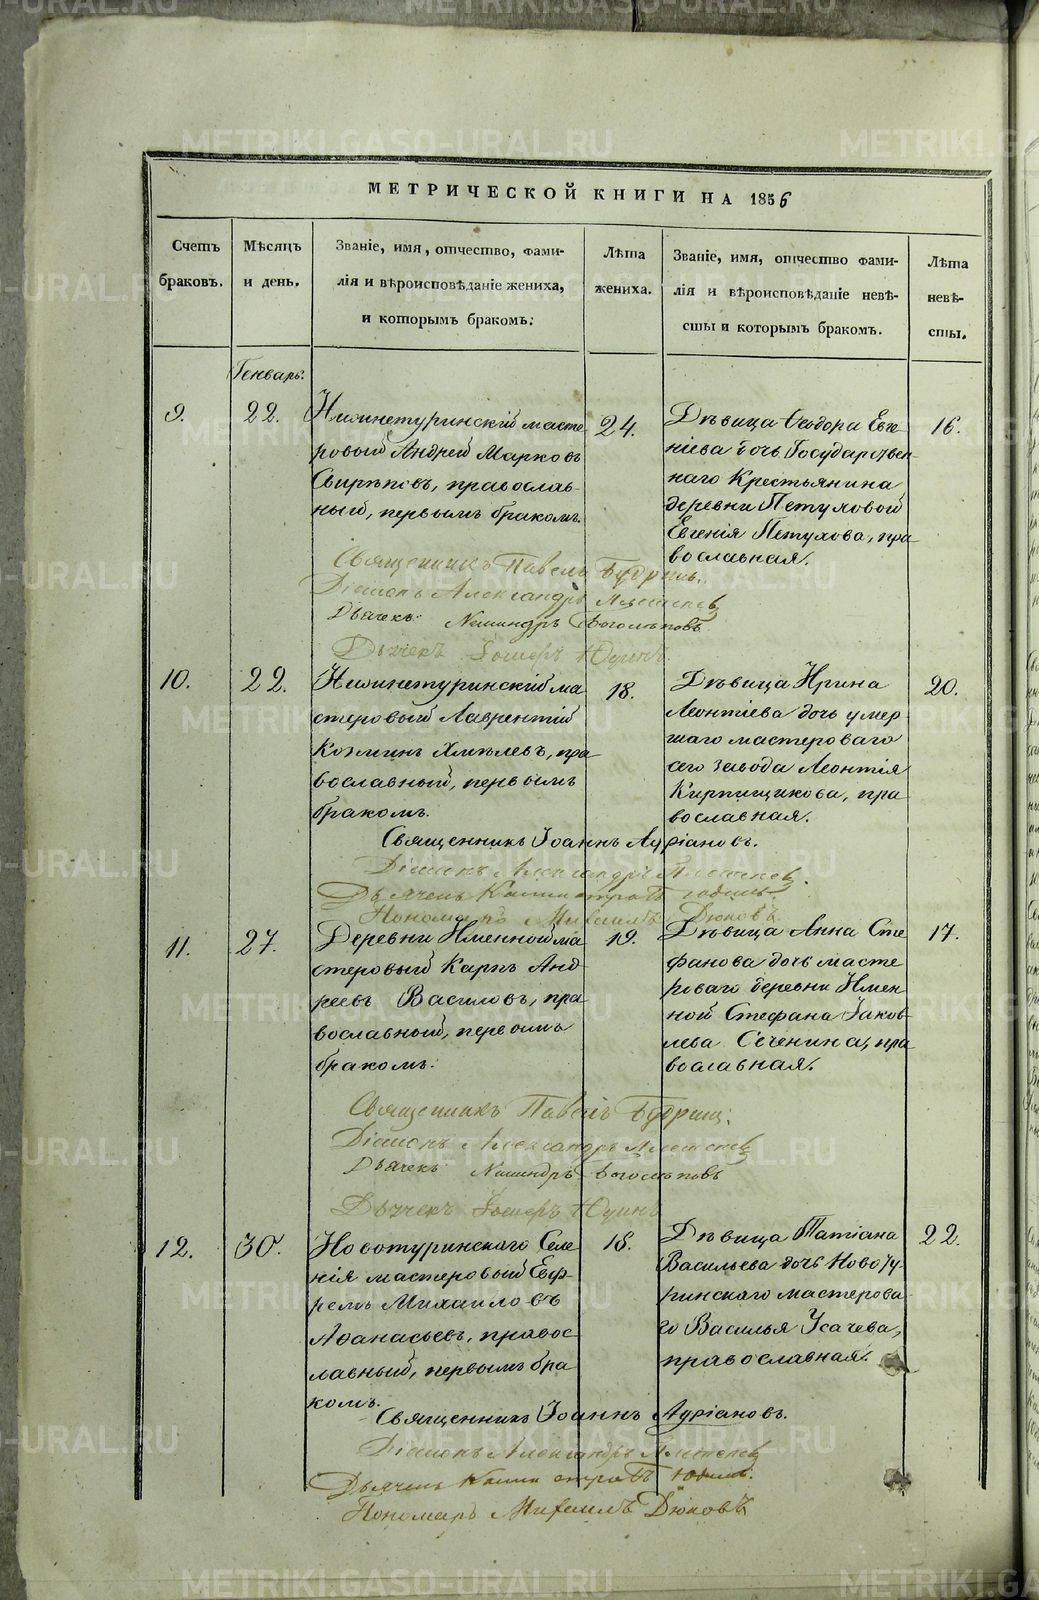 МЕТРИЧЕСКОЙ КНИГИ НА 1856
Счетъ браковъ.
Мѣсяцъ и день.
Званіе, имя, отчество, фами-
лія и вѣроисповѣданіе жениха,
и которымъ бракомъ:
Лѣта жениха.
Званіе, имя, отчество фами-
лія и вѣроисповѣданіе невѣ-
сты и которымъ бракомъ.
Лѣта невѣ-
сты.
Генварь:
9.
22.
Нижнетуринскій масте
ровый Андрей Марковъ
Свирѣповъ, православ-
ный, первымъ бракомъ.
24.
Дѣвица Ѳеодора Евге
ніева дочь Государствен-
наго Крестьянина
деревни Петуховой
Евгенія Петухова, пра
вославная.
16.
Священникъ Павелъ
Діаконъ Александръ
Дьячекъ: Боголѣповъ
Дьячекъ
10.
22.
Нижнетуринскій ма
стеровый Лаврентій
Козминъ Хмѣлевъ, пра
вославный, первымъ
бракомъ.
18.
Дѣвица Ирина
Леонтіева дочь умер
шаго мастероваго
сего завода Леонтія
Кирпищикова, пра
вославная.
20.
Священникъ Іоаннъ Адріановъ.
Діаконъ Александръ
Дьячекъ
Пономарь Михаилъ Дюковъ
11.
27.
Деревни Именной ма
стеровый Карпъ Анд
реевъ Василовъ, пра
вославный, первымъ
бракомъ:
19.
Дѣвица Анна Сте
фанова дочь масте
роваго деревни Имен
ной Стефана Іаков
лева Сеченина, пра
вославная.
17.
Священникъ Павелъ
Діаконъ Александръ
Дьячекъ Боголѣповъ
Дьячекъ
12.
30.
Новотуринскаго Селе
нія мастеровый Евф
ремъ Михаиловъ
Аѳанасьевъ, правос
лавный, первымъ бра
комъ.
18.
Дѣвица Татіана
Васильева дочь Новоту
ринскаго мастерова
го Василья Усачева,
православная.
22.
Священникъ Іоаннъ Адріановъ.
Діаконъ Александръ
Дьячекъ
Пономарь Михаилъ Дюковъ
METRIKI.GASO-URAL.RU